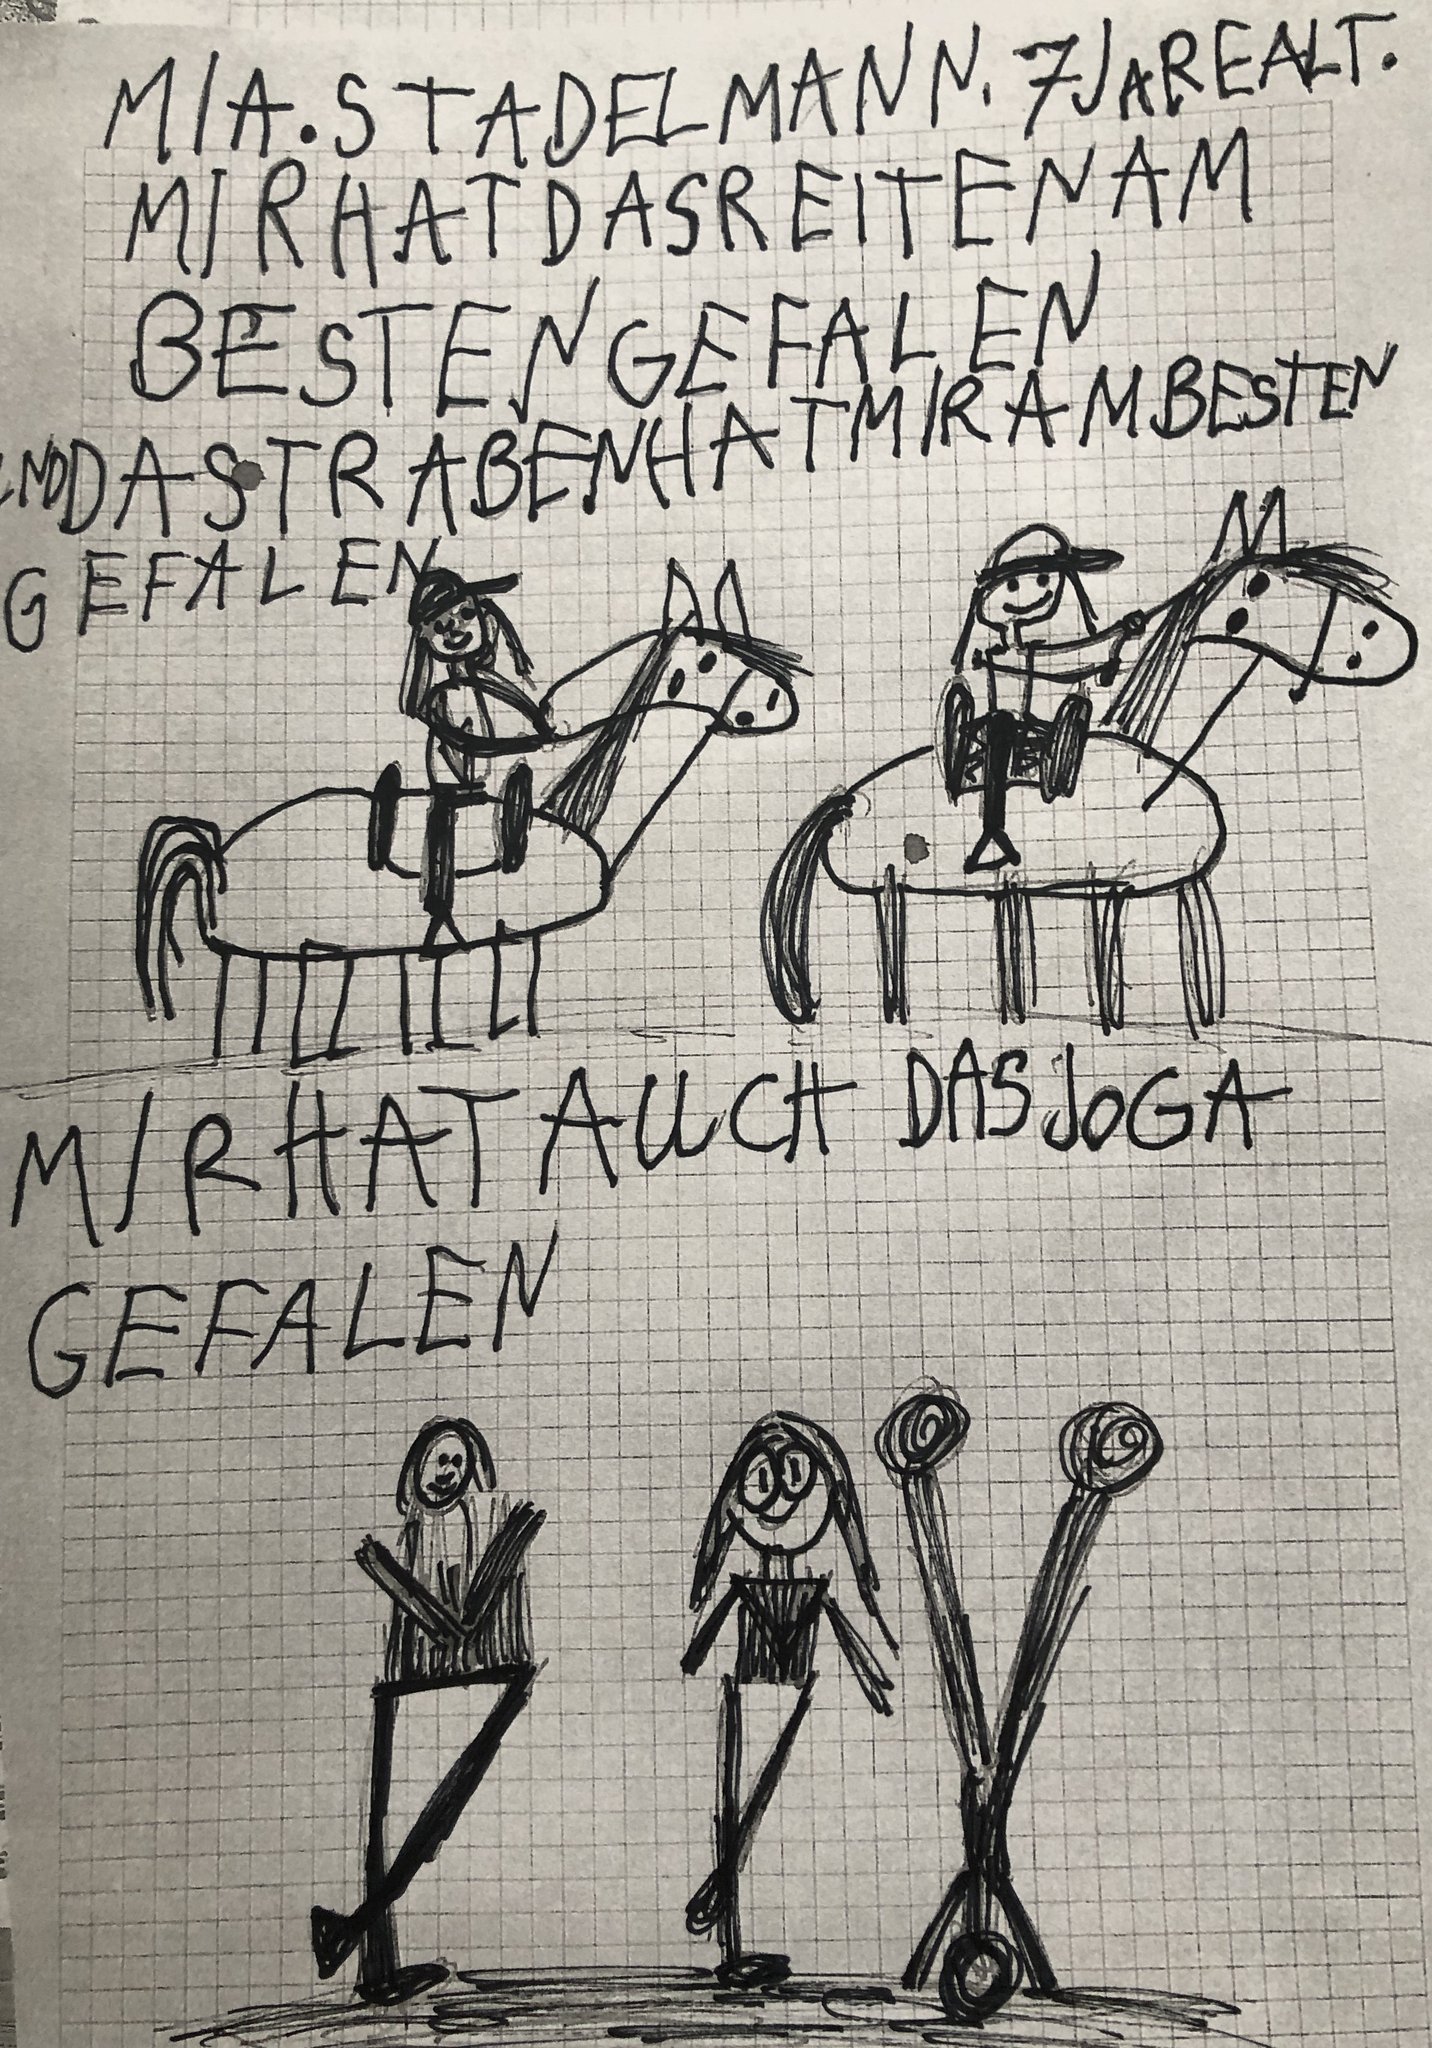 MIA. STADELMANN. 7 JARE ALT.
MIR HAT DAS REITEN AM
BESTEN GEFALEN
UND DAS TRABEN HAT MIR AM BESTEN
GEFALEN
MIR HAT AUCH DAS JOGA
GEFALEN